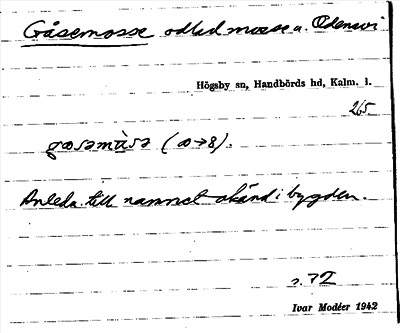 Gåsemosse odlad mosse u. Odensvi
Högsby sn, Handbörds hd, Kalm. l.
265
Anledn. till namnet okänd i bygden.
s. 72
Ivar Modéer 1942